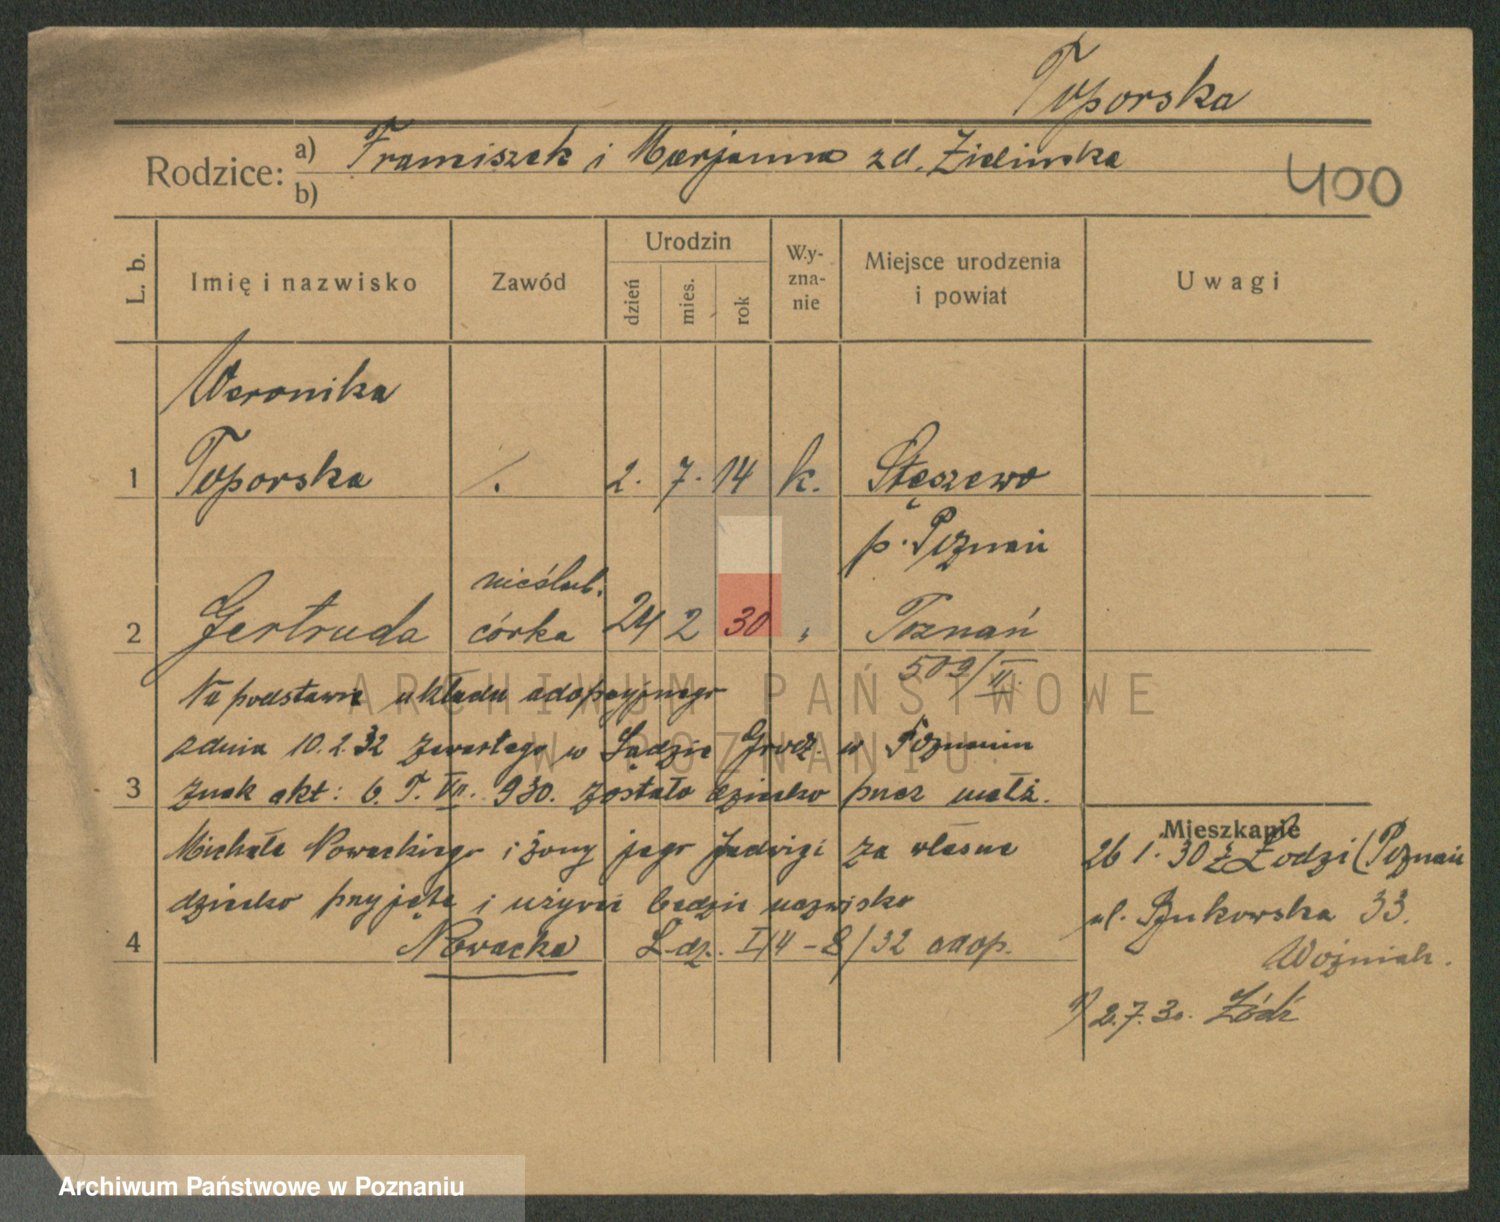 Toporska
Rodzice: a) Franciszek i Marjanna z d. Zielinska
b)
400
L. b. Imię i nazwisko Zawód Urodzin dzień mies. rok Wyznanie Miejsce urodzenia i powiat Uwagi
Weronika
1 Toporska /. 2. 7. 14 k. Stęszewo
p. Poznań
nieślub.
2 Gertruda córka 24 2 30 " Poznań
509/II.
Na podstawie układu adopcyjnego
z dnia 10.2.32 zawartego w Sądzie Grodz. w Poznaniu
3 znak akt: 6. T. VII. 930. zostało dziecko przez małż.
Michała Nowackiego i żony jego Jadwigi za własne
dziecko przyjęte i używać będzie nazwisko
4 Nowacka L. dz. I/4-8/32 adop.
Mieszkanie
26 1. 30 z Łodzi (Poznań
ul. Bukowska 33.
Woźniak.
2.7.30. Łódź
ARCHIWUM PAŃSTWOWE
W POZNANIU
Archiwum Państwowe w Poznaniu